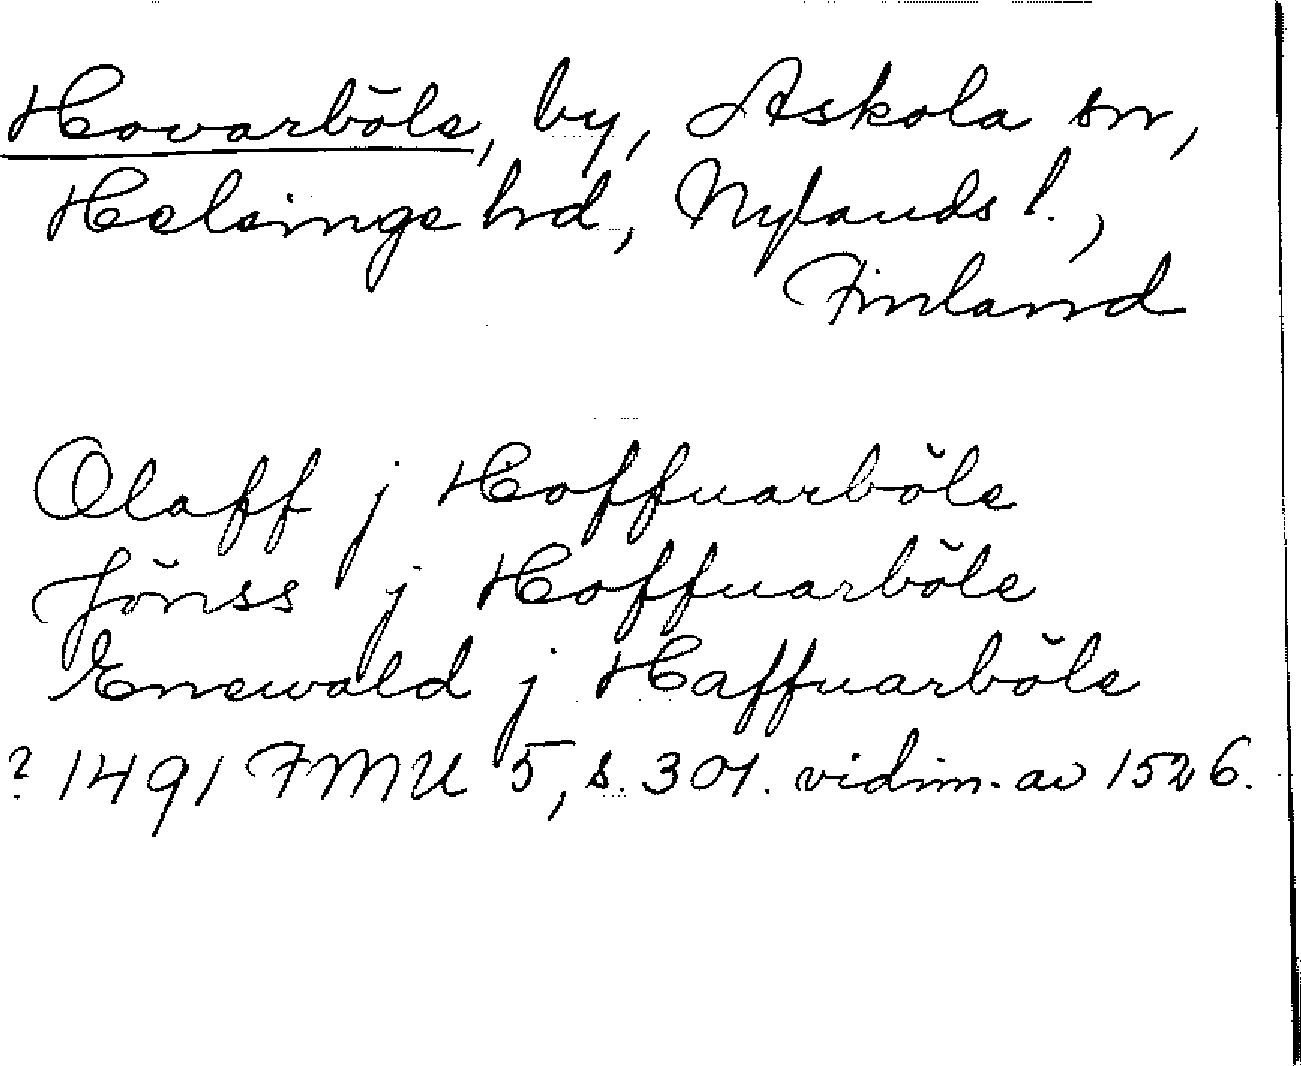 Hovarböle, by, Askola sn,
Helsinge hrd, Nylands l.,
Finland
Olaff j Hoffuarböle
Jönss j Hoffuarböle
Enewald j Haffuarböle
? 1491 FMU 5, s. 301. vidim. av 1526.